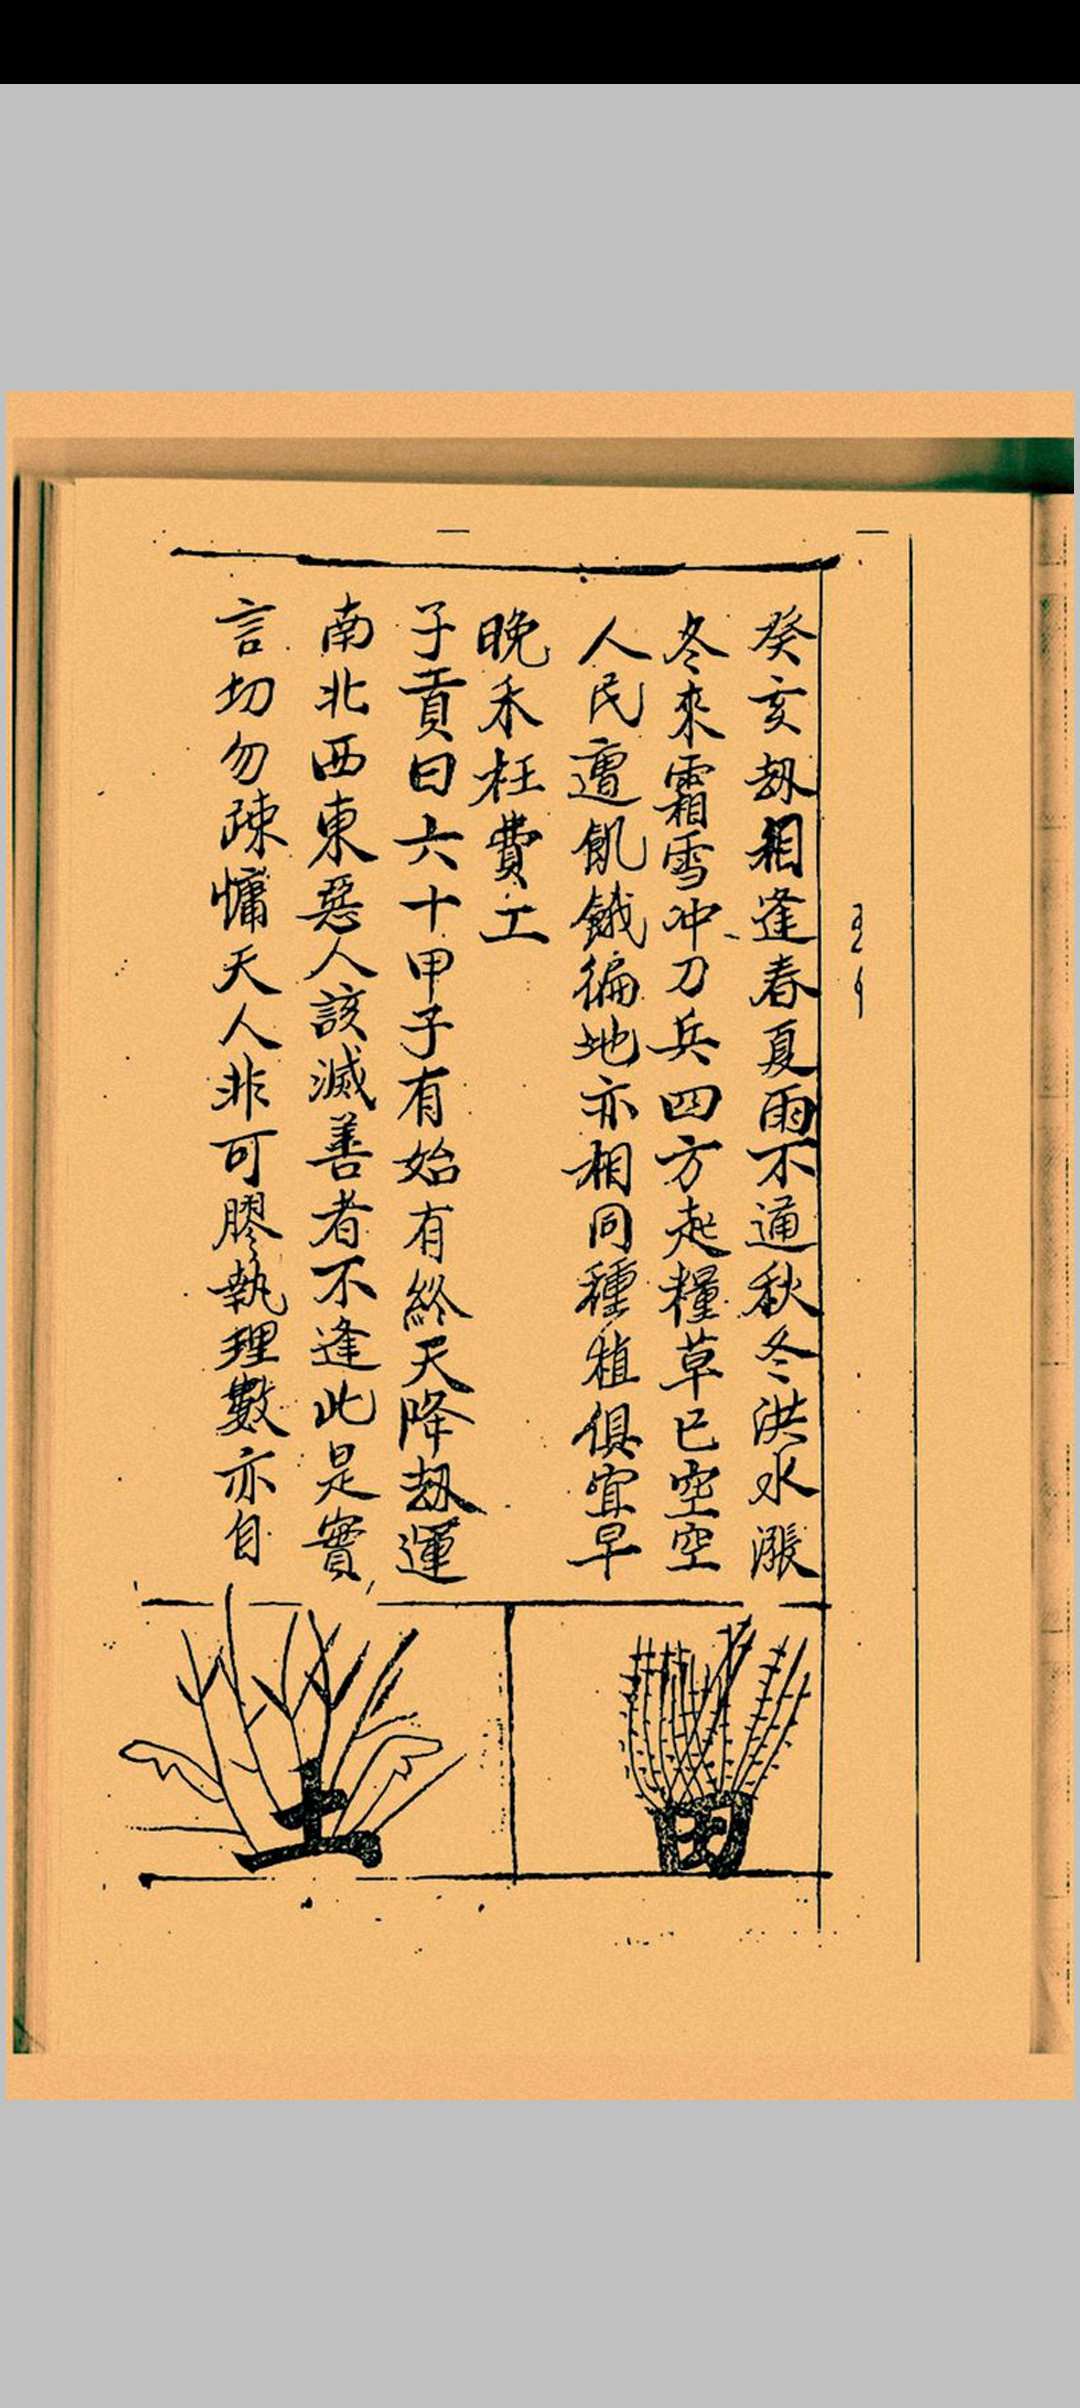 癸亥刼相逢春夏雨不通秋冬洪水漲
冬來霜雪冲刀兵四方起糧草已空空
人民遭飢餓徧地亦相同種植俱宜早
晚禾枉費工
子貢曰六十甲子有始有終天降刼運
南北西東惡人該滅善者不逢此是實
言切勿疎慵天人非可膠執理數亦自
田
土